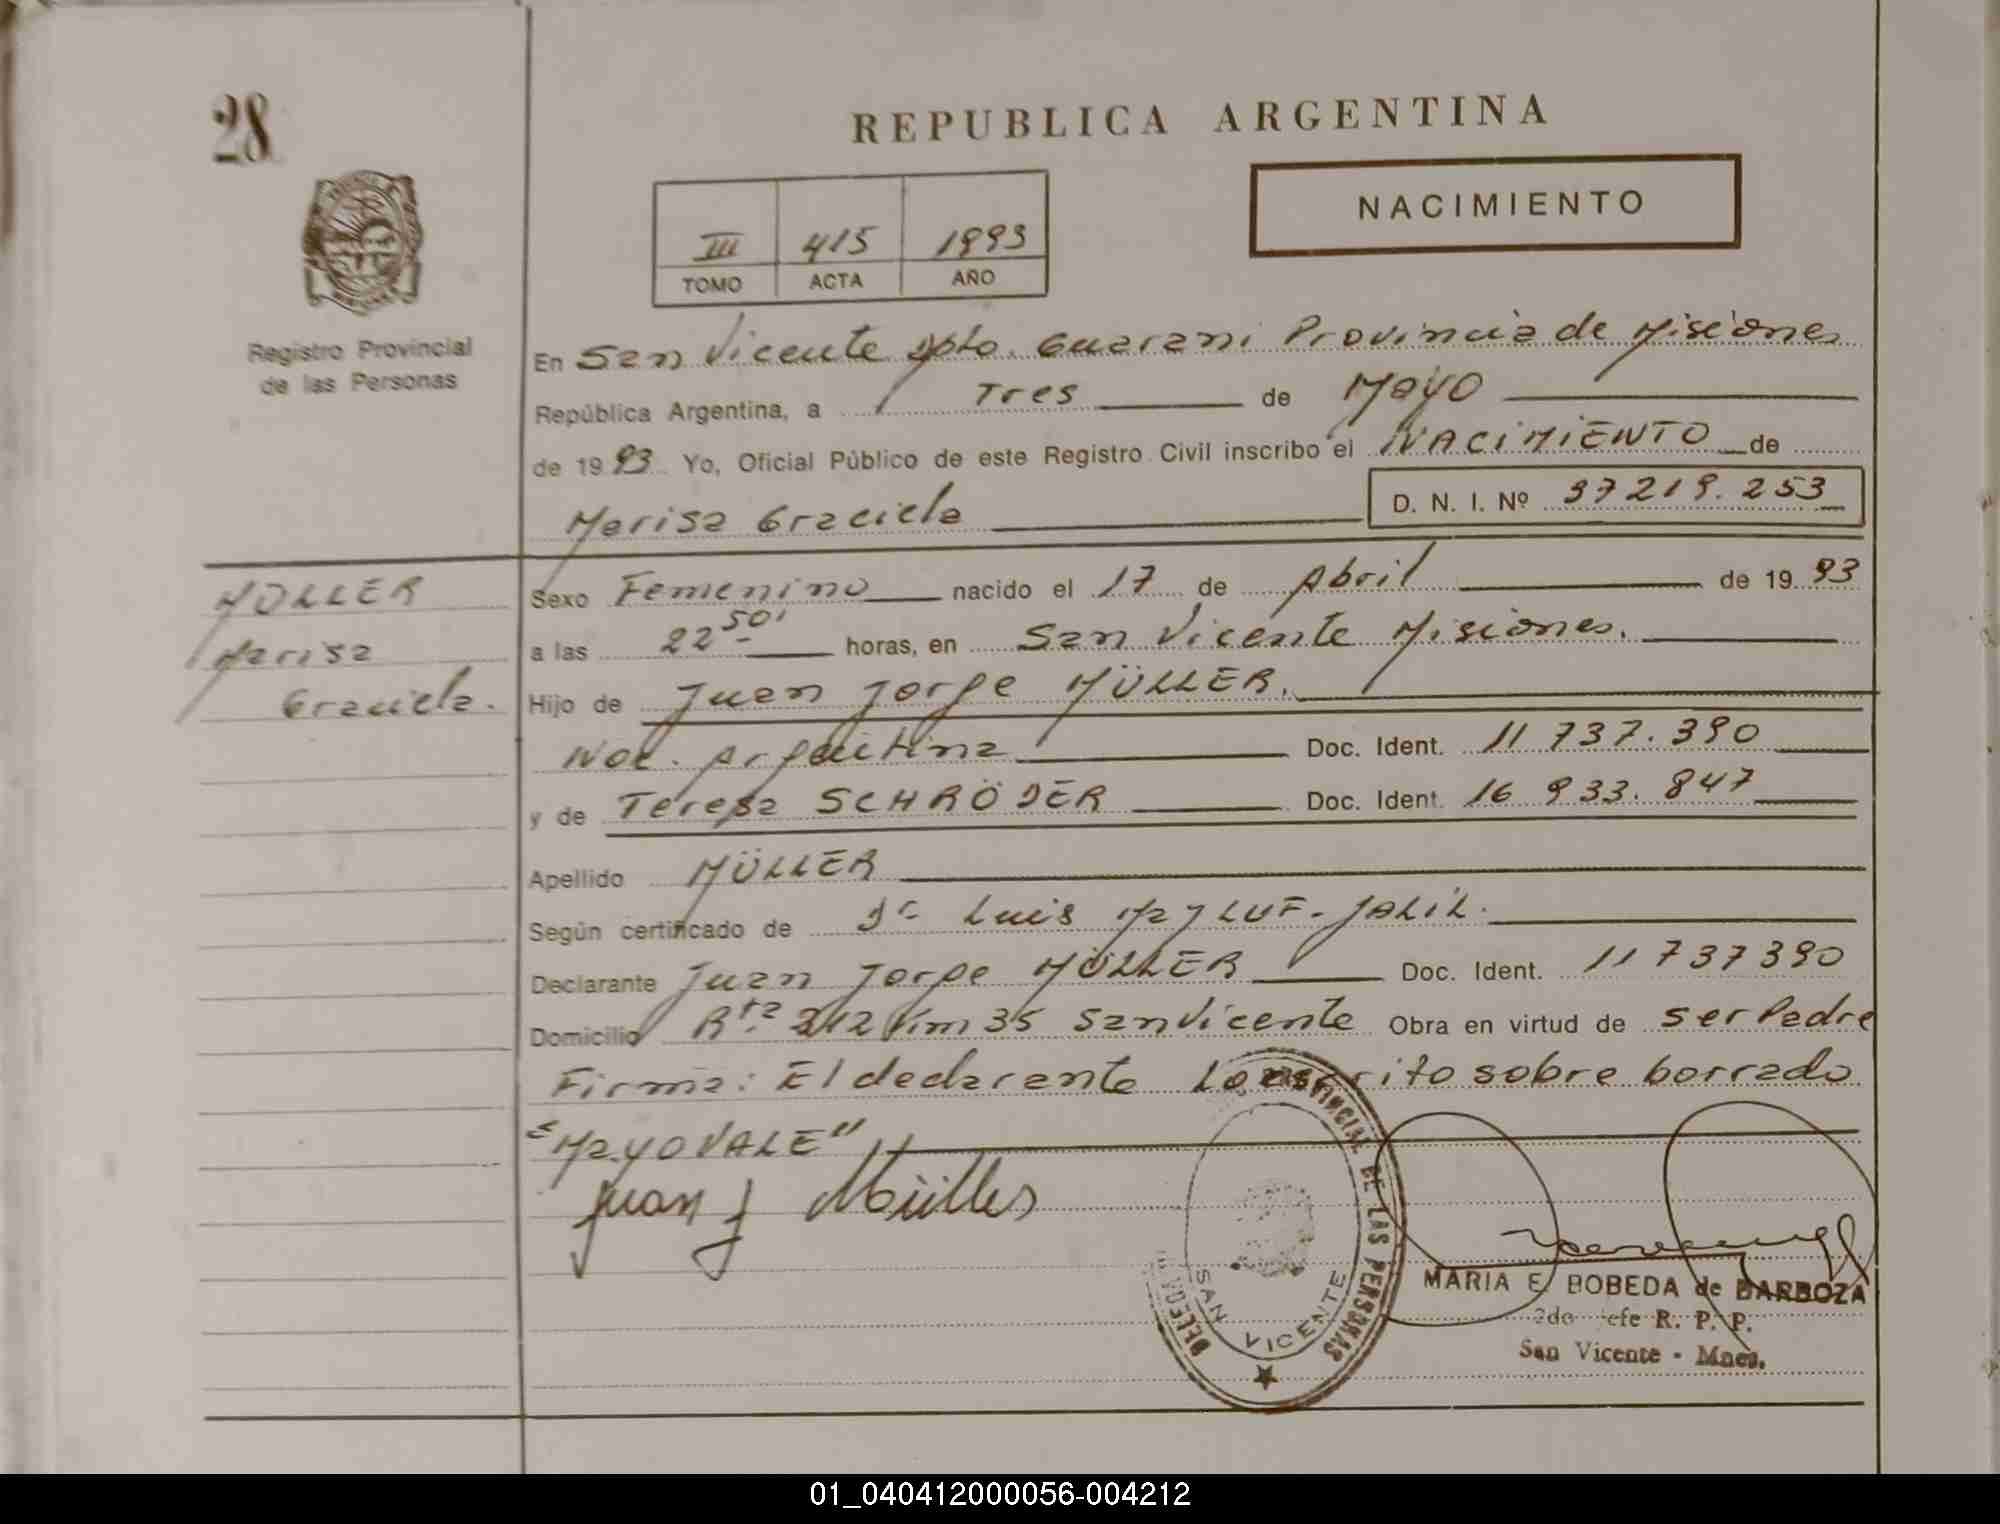 28
REPUBLICA ARGENTINA
NACIMIENTO
III 415 1993
TOMO ACTA AÑO
Registro Provincial
de las Personas
En San Vicente Dpto. Guarani Provincia de Misiones
República Argentina, a Tres de Mayo
de 1993 Yo, Oficial Público de este Registro Civil inscribo el NACIMIENTO de
Marisa Graciela D. N. I. Nº 37219.253
MÜLLER
Marisa
Graciela.
Sexo Femenino nacido el 17 de Abril de 1993
a las 22 50' horas, en San Vicente Misiones.
Hijo de Juan Jorge MÜLLER.
Nac. Argentina Doc. Ident. 11 737.390
y de Teresa SCHRÖDER Doc. Ident. 16 933.847
Apellido MÜLLER
Según certificado de Dr Luis JALIL.
Declarante Juan Jorge MÜLLER Doc. Ident. 11 737390
Domicilio Rta 212 Km 35 San Vicente Obra en virtud de ser Padre
Firma: El declarante Lo escrito sobre borrado
"MAYO VALE"
Juan J Müller
PROVINCIAL DE LAS PERSONAS
SAN VICENTE
MARIA E. BOBEDA de BARBOZA
2do Jefe R. P. P.
San Vicente - Mnes.
01_040412000056-004212